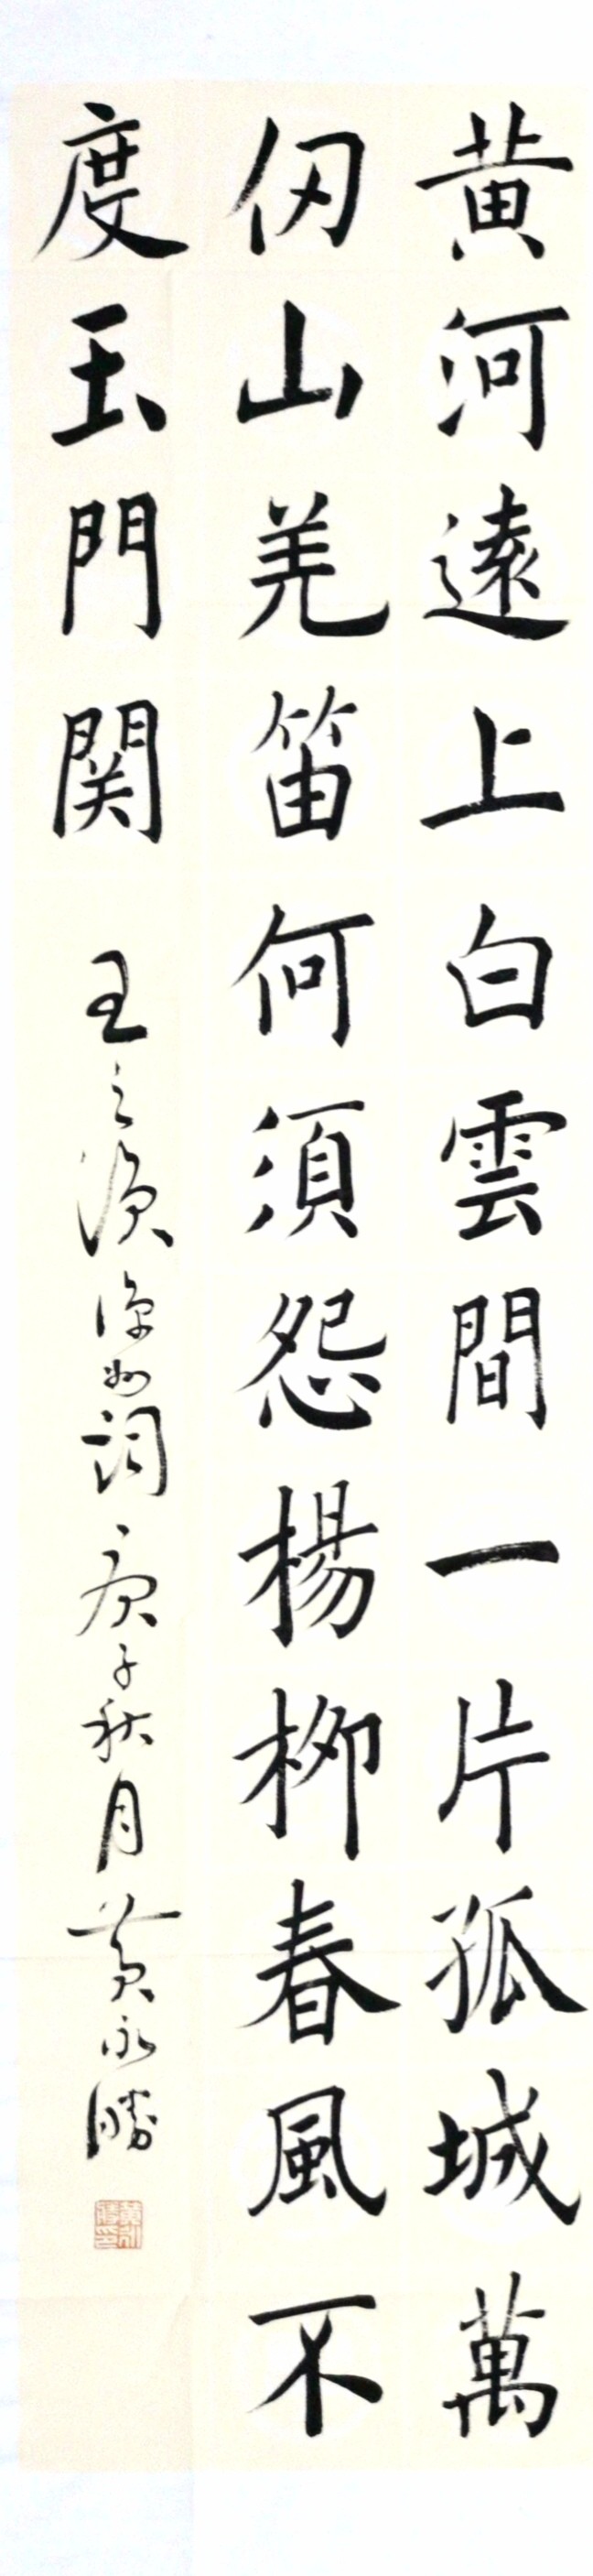 黄河遠上白雲間一片孤城萬
仞山羌笛何須怨楊柳春風不
度玉門関 王之渙涼州詞 庚子秋月 黄永勝